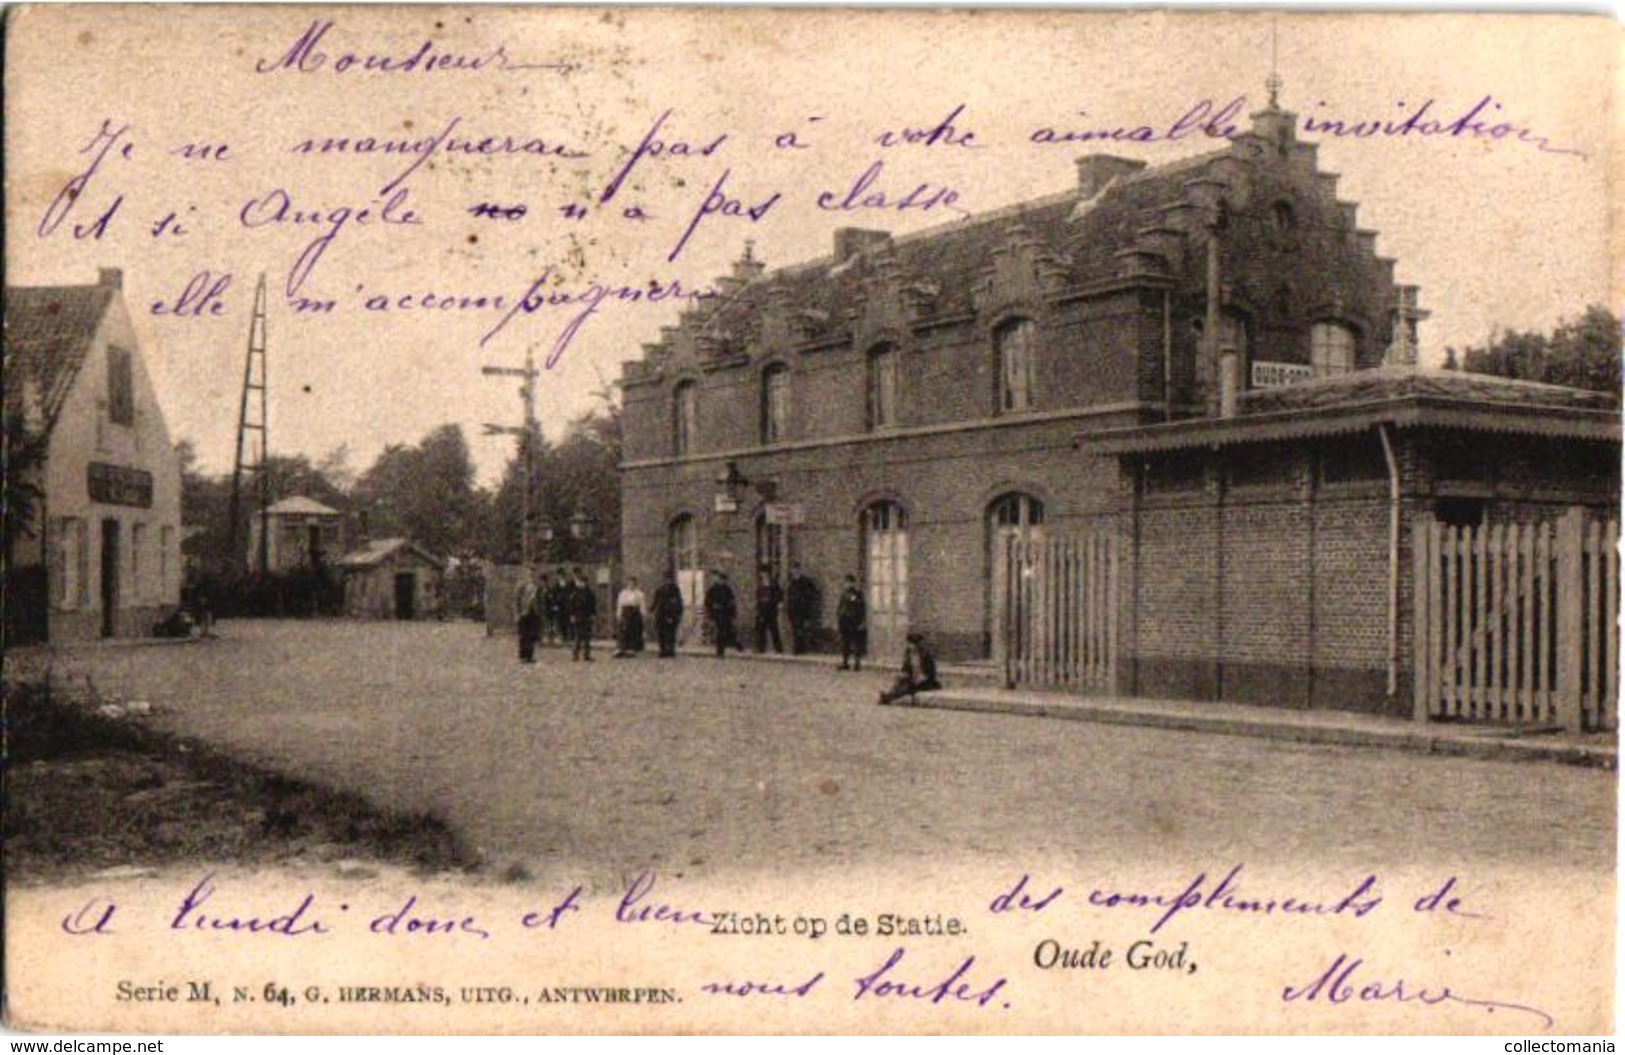 Monsieur
Je ne manquerai pas à votre aimable invitation
et si Angèle no n'a pas classe
elle m'accompagnera
OUDE-GOD
A lundi donc et bien des compliments de
Zicht op de Statie.
Oude God,
nous toutes. Marie
Serie M, N. 64, G. HERMANS, UITG., ANTWERPEN.
www.delcampe.net
collectomania